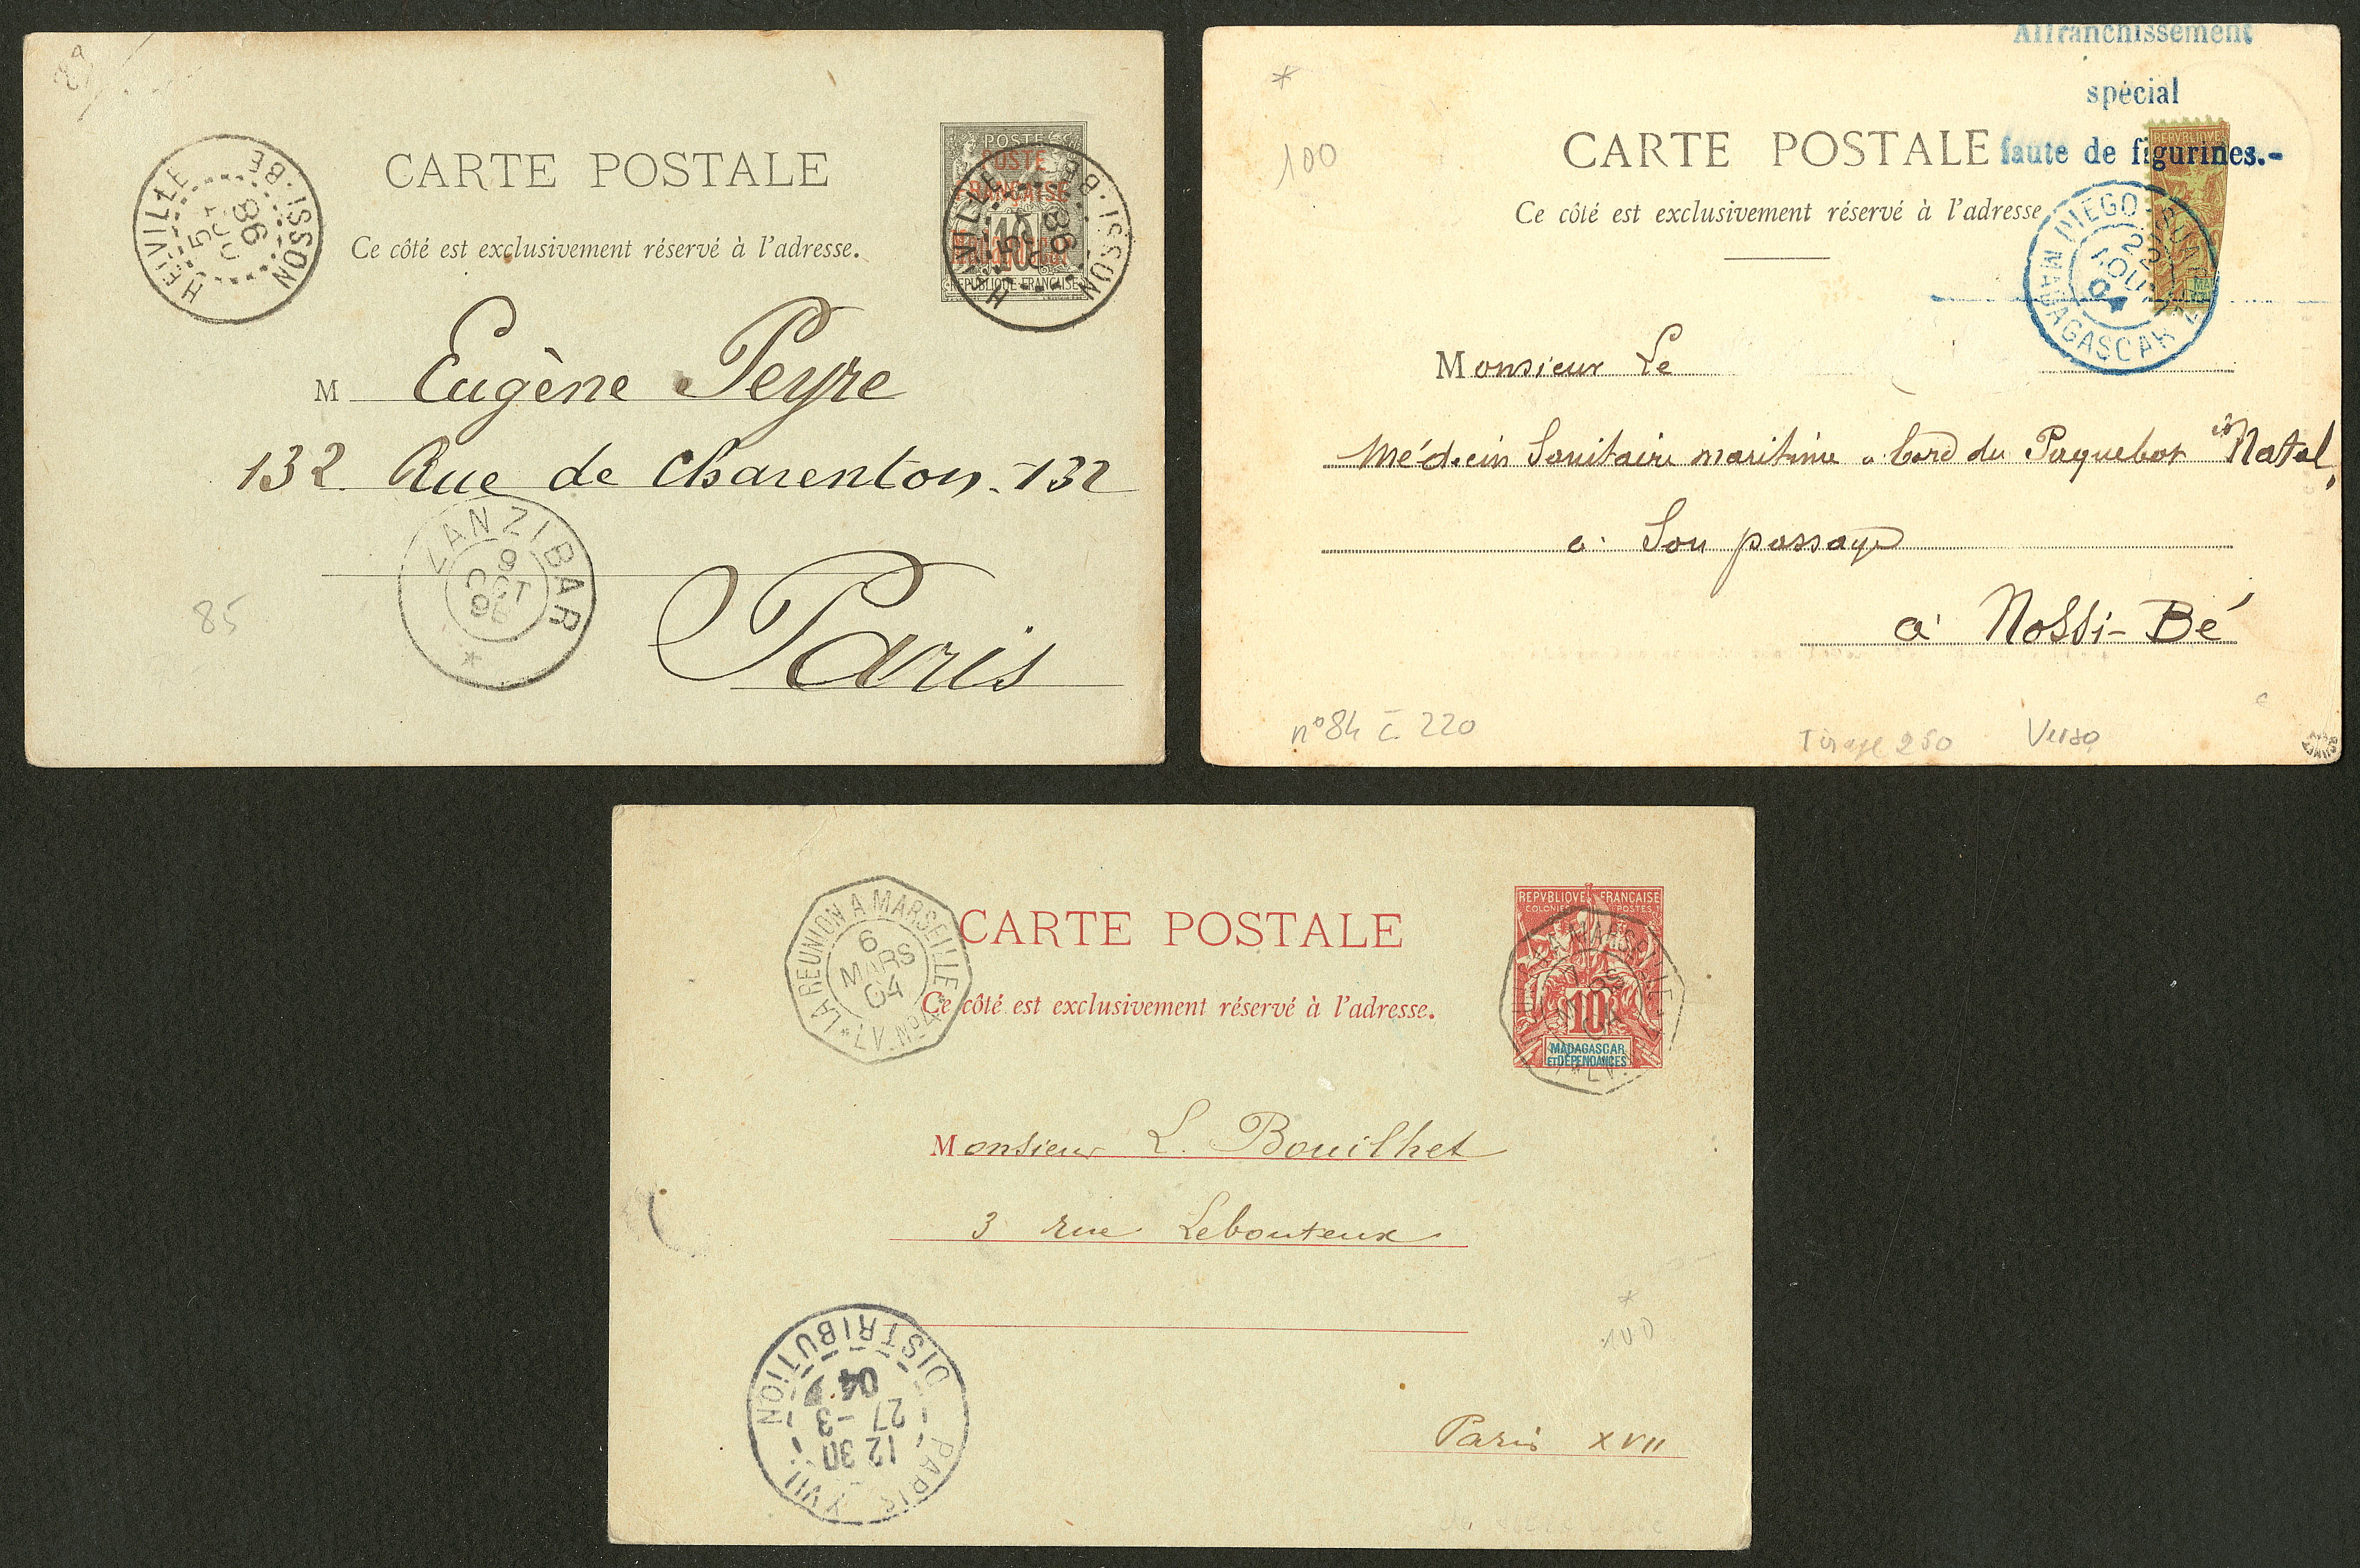 89
HELVILLE NOSSI-BE
5
OCT
96
CARTE POSTALE
Ce côté est exclusivement réservé à l'adresse.
POSTE
POSTE
FRANÇAISE
10
Madagascar
REPUBLIQUE FRANÇAISE
HELVILLE NOSSI-BE
5
OCT
96
M Eugène Peyre
132 Rue de Charenton-132
Paris
ZANZIBAR
9
OCT
96
85
Affranchissement
spécial
faute de figurines.-
*
100
CARTE POSTALE
Ce côté est exclusivement réservé à l'adresse
REPVBLIQVE
DIEGO-SUAREZ
AOUT
04
MADAGASCAR
Monsieur Le
Médecin Sanitaire maritime a bord du Paquebot Natal
a Son passage
a Nossi-Bé
n° 84 c 220
Tirage 250
Verso
LA REUNION A MARSEILLE
6
MARS
04
LV. N°4
CARTE POSTALE
Ce côté est exclusivement réservé à l'adresse.
REPVBLIQVE FRANÇAISE
COLONIES POSTES
10
MADAGASCAR
ET DÉPENDANCES
Monsieur L. Bouilhet
3 rue Lebouteux
*
100
Paris XVII
PARIS XVII DISTRIBUTION
12 30
27 -3
04